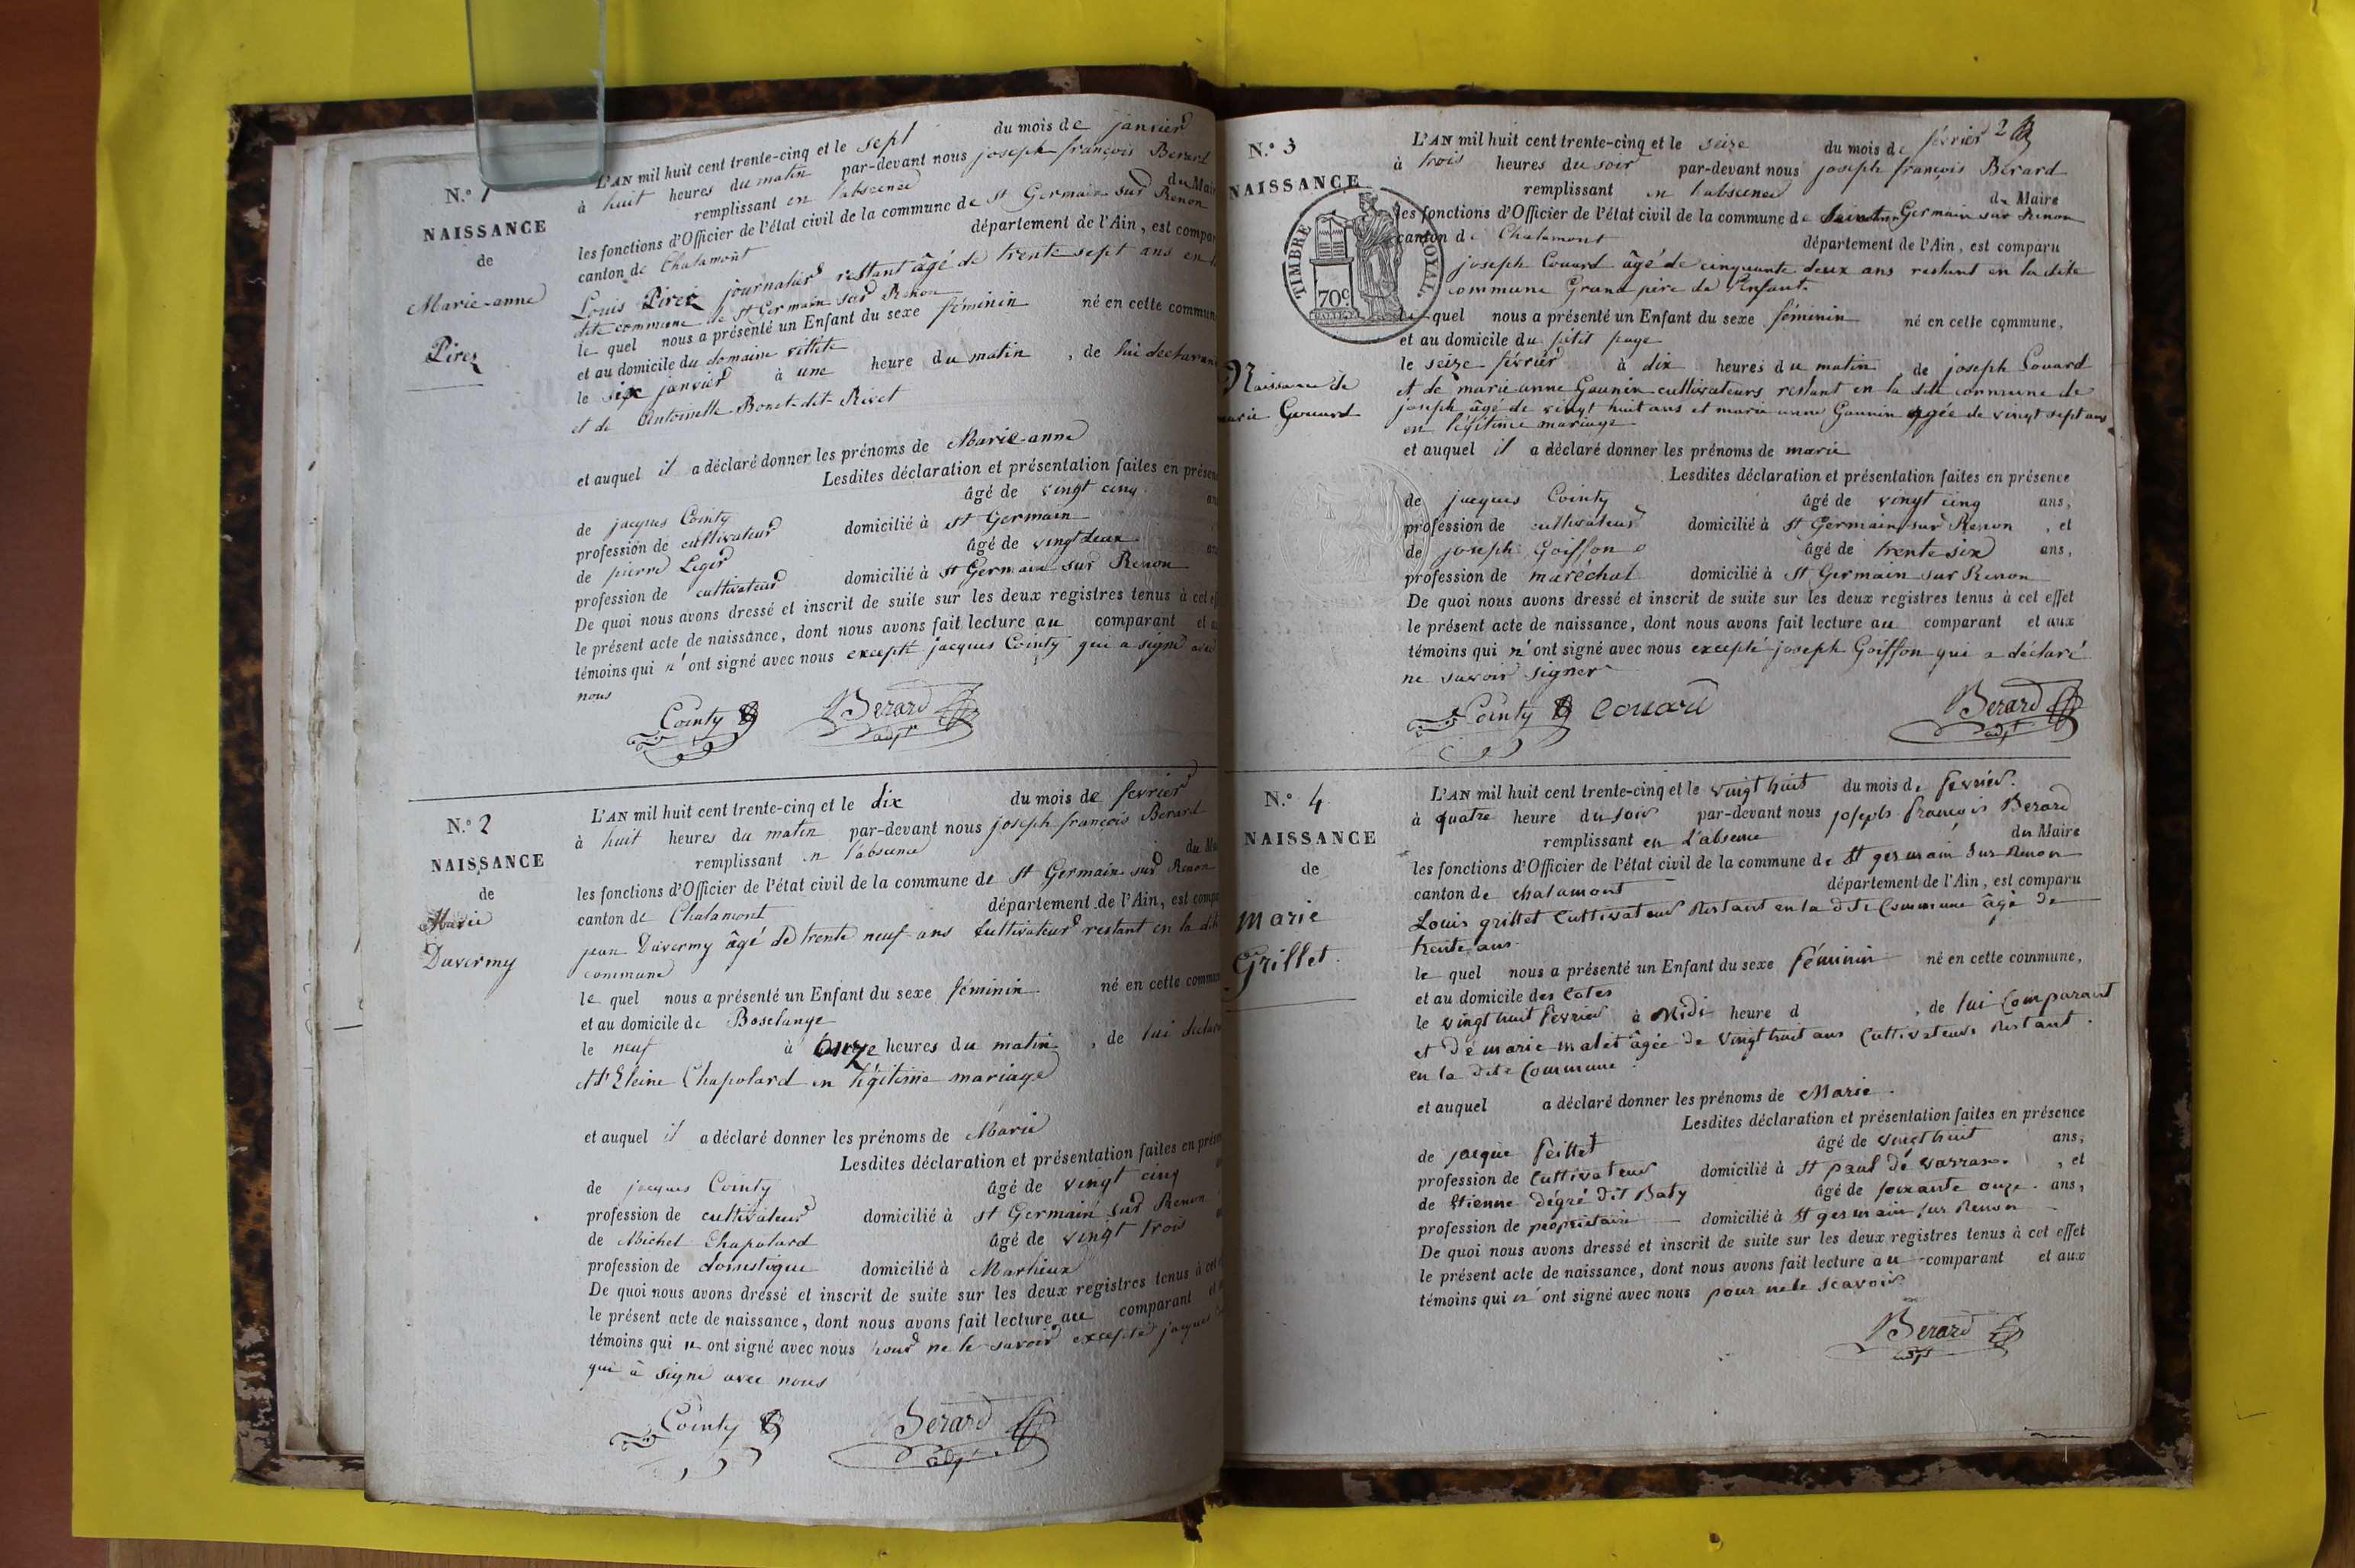 N.° 1
NAISSANCE
de
Marie-anne
Pirez
L'AN mil huit cent trente-cinq et le sept du mois de janvier
à huit heures du matin par-devant nous joseph françois Berard
remplissant en l'absence du Mai
les fonctions d'Officier de l'état civil de la commune de St Germain sur Renon
canton de Chalamont département de l'Ain, est compar
Louis Pirez journalier restant âgé de trente sept ans en la
dite commune de St Germain sur Renon
le quel nous a présenté un Enfant du sexe féminin né en cette commun
et au domicile du domaine villete
le six janvier à une heure du matin, de lui declarant
et de Antoinette Bonet-dit-Rivet
et auquel il a déclaré donner les prénoms de Marie-anne
Lesdites déclaration et présentation faites en présen
de jacques Cointy âgé de vingt cinq an
profession de cultivateur domicilié à St Germain
de pierre Leger âgé de vingt deux an
profession de cultivateur domicilié à St Germain sur Renon
De quoi nous avons dressé et inscrit de suite sur les deux registres tenus à cet ef
le présent acte de naissance, dont nous avons fait lecture au comparant et a
témoins qui n'ont signé avec nous excepté jacques Cointy qui a signé avec
nous
Cointy Berard
adjt
N.° 2
NAISSANCE
de
Marie
Davermy
L'AN mil huit cent trente-cinq et le dix du mois de fevrier
à huit heures du matin par-devant nous joseph françois Berard
remplissant en l'absence du Ma
les fonctions d'Officier de l'état civil de la commune de St Germain sur Renon
canton de Chalamont département de l'Ain, est compa
jean Davermy âgé de trente neuf ans cultivateur restant en la dite
commune
le quel nous a présenté un Enfant du sexe féminin né en cette commun
et au domicile de Boselange
le neuf à onze heures du matin, de lui declara
et d'Eleine Chapolard en légitime mariage
et auquel il a déclaré donner les prénoms de Marie
Lesdites déclaration et présentation faites en prése
de jacques Cointy âgé de vingt cinq
profession de cultivateur domicilié à St Germain sur Renon
de Michel Chapolard âgé de vingt trois
profession de domestique domicilié à Marlieux
De quoi nous avons dressé et inscrit de suite sur les deux registres tenus à cet
le présent acte de naissance, dont nous avons fait lecture au comparant et
témoins qui n ont signé avec nous pour ne le savoir excepté jacques
qui a signé avec nous
Cointy Berard
adjt
2
N.° 3
NAISSANCE
TIMBRE ROYAL.
70c
Naissance de
marie Gouard
L'AN mil huit cent trente-cinq et le seize du mois de février
à trois heures du soir par-devant nous joseph françois Bérard
remplissant en l'absence du Maire
les fonctions d'Officier de l'état civil de la commune de Saint Germain sur Renon
canton de Chalamont département de l'Ain, est comparu
joseph Couard âgé de cinquante deux ans restant en la dite
commune Grand père de l'enfant.
le quel nous a présenté un Enfant du sexe féminin né en cette commune,
et au domicile du petit page
le seize février à dix heures du matin, de joseph Couard
et de marie anne Gaunin cultivateurs restant en la dite commune de
joseph âgé de vingt huit ans et marie anne Gaunin agée de vingt sept ans
en légitime mariage
et auquel il a déclaré donner les prénoms de marie
Lesdites déclaration et présentation faites en présence
de jacques Cointy âgé de vingt cinq ans,
profession de cultivateur domicilié à St Germain sur Renon, et
de joseph Goiffon âgé de trente six ans,
profession de maréchal domicilié à St Germain sur Renon
De quoi nous avons dressé et inscrit de suite sur les deux registres tenus à cet effet
le présent acte de naissance, dont nous avons fait lecture au comparant et aux
témoins qui n'ont signé avec nous excepté joseph Goiffon qui a déclaré
ne savoir signer
Cointy Couard Berard
adjt
N.° 4
NAISSANCE
de
Marie
Grillet.
L'AN mil huit cent trente-cinq et le vingt huit du mois de fevrier.
à quatre heure du soir par-devant nous joseph françois Berard
remplissant en l'absence du Maire
les fonctions d'Officier de l'état civil de la commune de St germain sur Renon
canton de chalamont département de l'Ain, est comparu
Louis grillet Cultivateur Restant en la dite Commune âgé de
trente ans.
le quel nous a présenté un Enfant du sexe féminin né en cette commune,
et au domicile des Cotes
le vingt huit fevrier à Midi heure d , de lui Comparant
et dé marie malet âgée de vingt huit ans Cultivateurs Restant
en la dite Commune.
et auquel a déclaré donner les prénoms de Marie.
Lesdites déclaration et présentation faites en présence
de jacque feillet âgé de vingt huit ans,
profession de Cultivateur domicilié à St paul dé varrax, et
de Etienne dégré dit Baty âgé de soixante onze. ans,
profession de propriétaire domicilié à St germain sur Renon
De quoi nous avons dressé et inscrit de suite sur les deux registres tenus à cet effet
le présent acte de naissance, dont nous avons fait lecture au comparant et aux
témoins qui n'ont signé avec nous pour ne le scavoir.
Berard
adjt